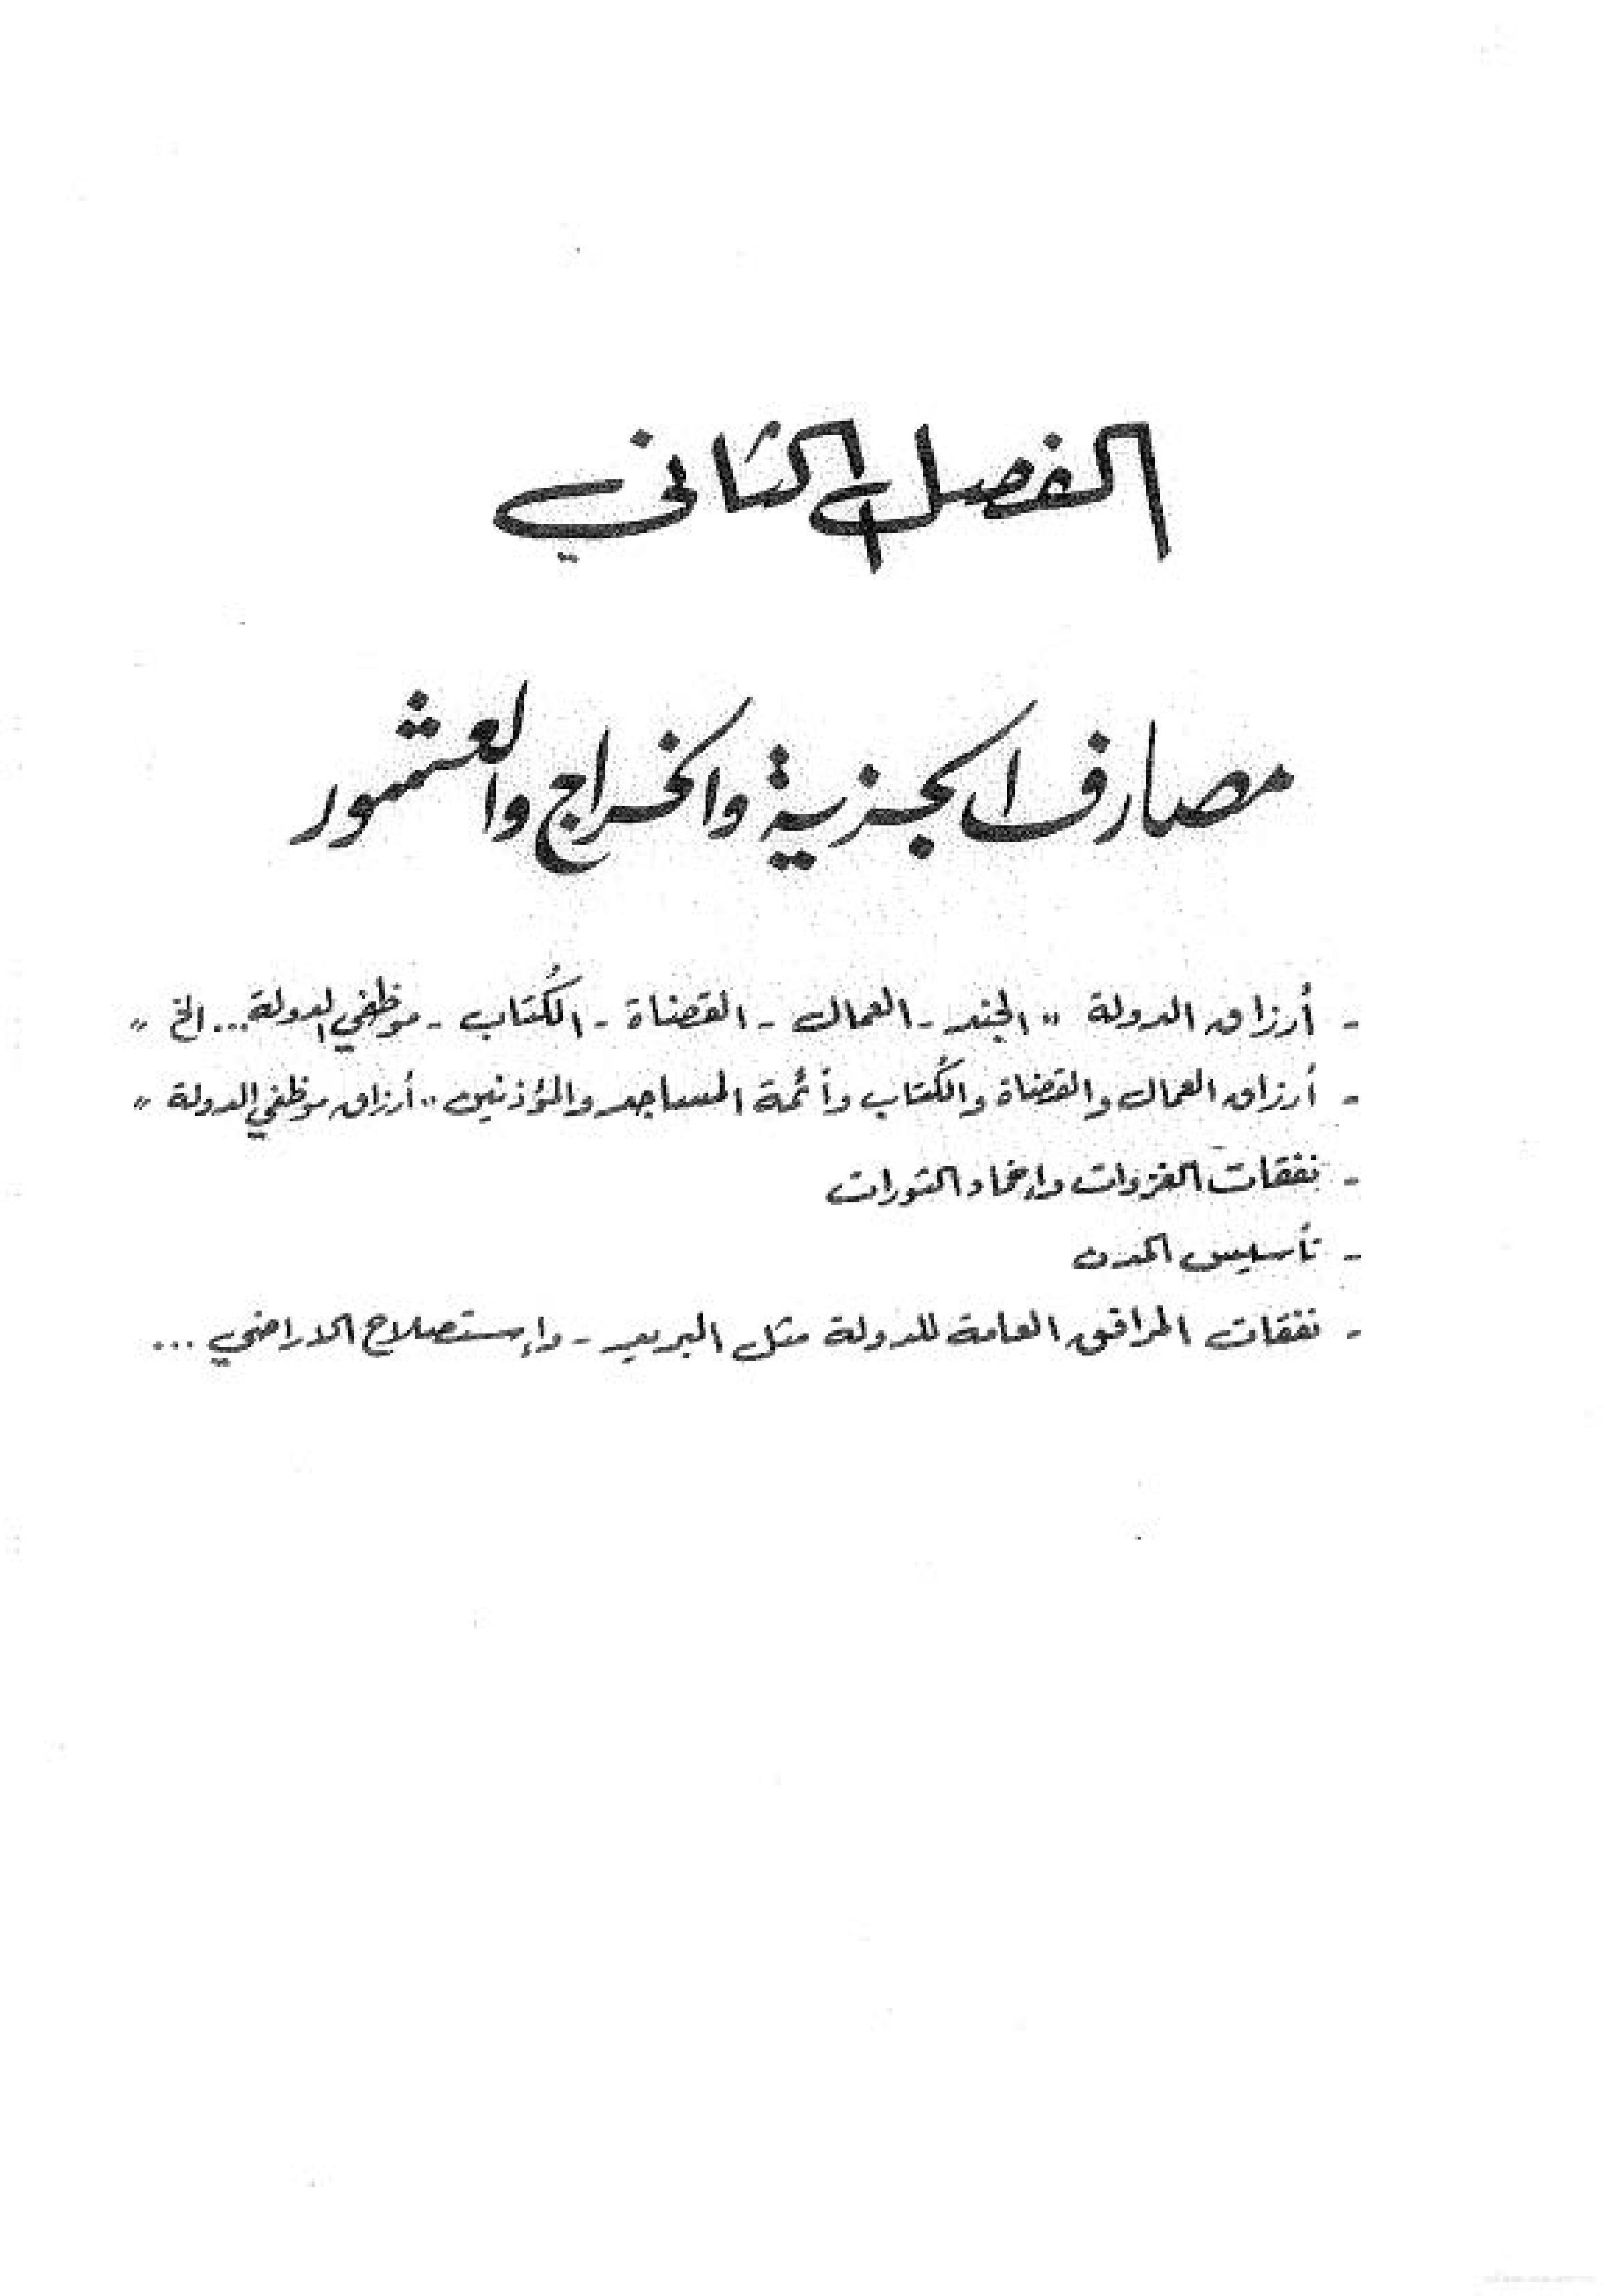 الفصل الثاني
مصارف الجزية والخراج والعشور
- أرزاق الدولة "الجند - العمال - القضاة - الكُتاب - موظفي الدولة ... الخ"
- أرزاق العمال والقضاة والكُتاب وأئمة المساجد والمؤذنين "أرزاق موظفي الدولة"
- نفقات الغزوات وإخماد الثورات
- تأسيس المدن
- نفقات المرافق العامة للدولة مثل البريد - وإستصلاح الاراضي ...